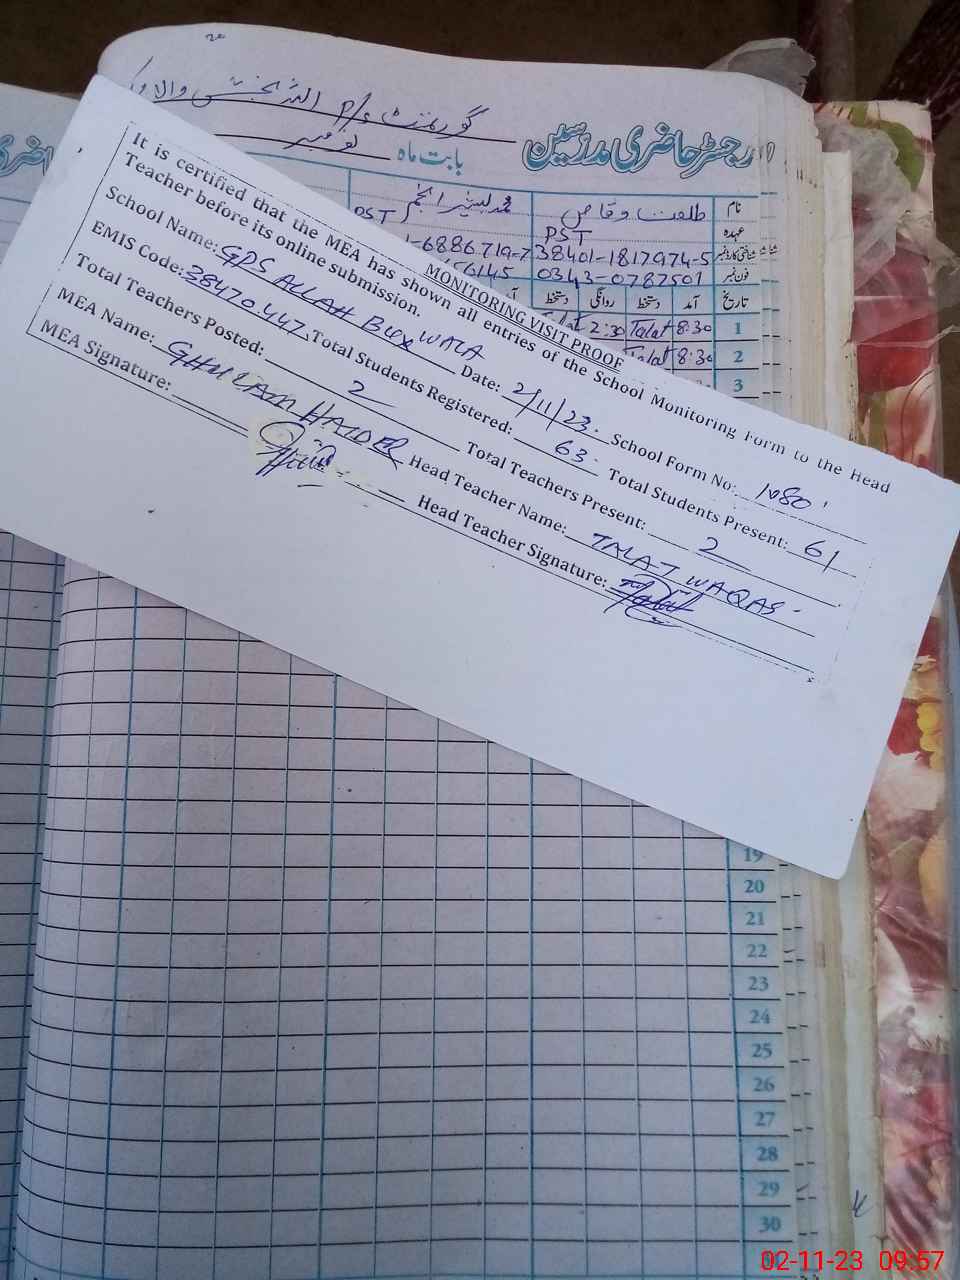 گورنمنٹ P/S اللہ بخش والا
رجسٹر حاضری مدرسین
بابت ماہ نومبر
نام طلعت وقاص محمد بشیر انجم
عہدہ PST PST
شناختی کارڈ نمبر 38401-1817974-5 -6886719-7
فون نمبر 0343-0787501 56145
تاریخ آمد دستخط روانگی دستخط
1 8:30 Talat 2:30 Talat
2 8:30 Talat
3
MONITORING VISIT PROOF
It is certified that the MEA has shown all entries of the School Monitoring Form to the Head
Teacher before its online submission.
School Name: GPS ALLAH BUX WALA Date: 2/11/23. School Form No: 1080
EMIS Code: 38470447 Total Students Registered: 63. Total Students Present: 61
Total Teachers Posted: 2 Total Teachers Present: 2
MEA Name: GHULAM HAIDER Head Teacher Name: TALAT WAQAS.
MEA Signature: Head Teacher Signature: Talat
19
20
21
22
23
24
25
26
27
28
29
30
02-11-23 09:57